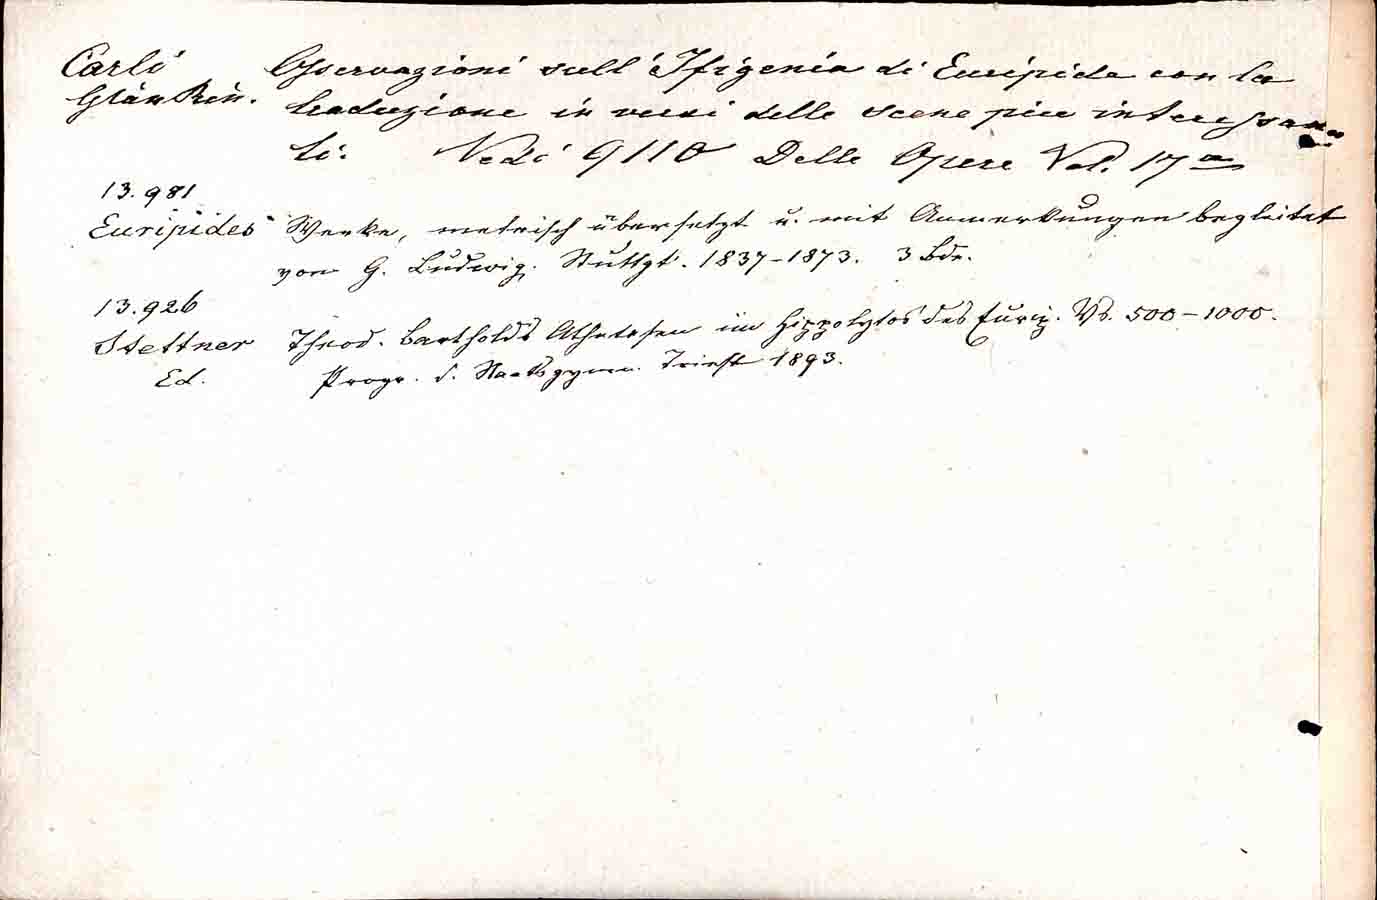 Carli Osservazioni sull' Ifigenia di Euripide con la
Gian Rin. traduzione in versi delle scene piu interessan-
ti. Vedi 9110 Delle Opere Vol. 17
13.981
Euripides' Werke, metrisch übersetzt u. mit Anmerkungen begleitet
von G. Ludwig. Stuttgt. 1837-1873. 3 Bde.
13.926
Stettner Theod. Bartholds Athetesen im Hippolytos des Eurip. Vs. 500-1000.
Ed. Progr. d. Staatsgymn. Triest 1893.